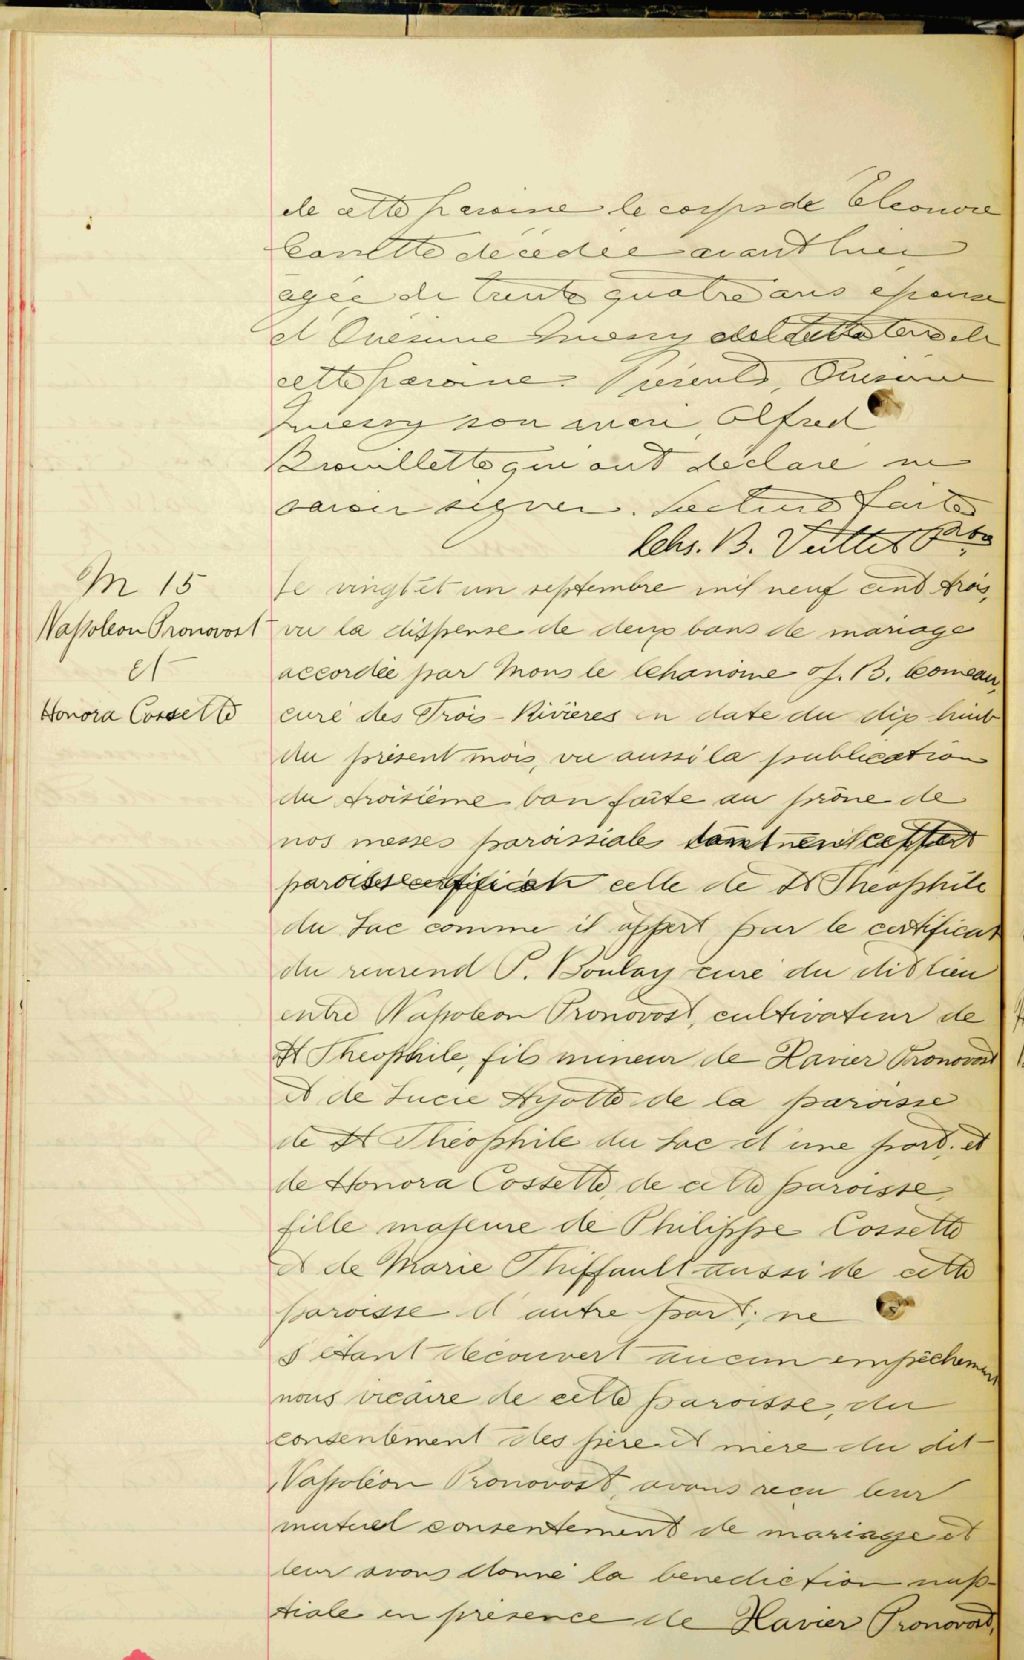 de cette paroisse le corps de Eleonore
Cossette décédée avant hier
agée de trente quatre ans épouse
d'Onésime
cette paroisse. Présents, Onésime
son mari, Alfred
Brouillette qui ont déclaré ne
savoir signer. Lecture faite
Chs. B. Veillet Ptre
M 15
Napoleon Pronovost
et
Honora Cossette
Le vingt et un septembre mil neuf cent trois,
vu la dispense de deux bans de mariage
accordée par Mons le Chanoine J. B. Comeau,
curé des Trois-Rivières en date du dix huit
du présent mois, vu aussi la publication
du troisième ban faite au prône de
nos messes paroissiales
paroisse celle de St Théophile
du Lac comme il appert par le certificat
du reverend P. Boulay curé du dit lieu
entre Napoleon Pronovost, cultivateur de
St Theophile, fils mineur de Xavier Pronovost
et de Lucie Ayotte de la paroisse
de St Théophile du Lac d'une part, et
de Honora Cossette, de cette paroisse,
fille majeure de Philippe Cossette
et de Marie Thiffault aussi de cette
paroisse d'autre part; ne
s'étant découvert aucun empêchement
nous vicaire de cette paroisse, du
consentement des père et mère du dit
Napoléon Pronovost, avons reçu leur
mutuel consentement de mariage et
leur avons donné la benediction nup-
tiale en présence de Xavier Pronovost,